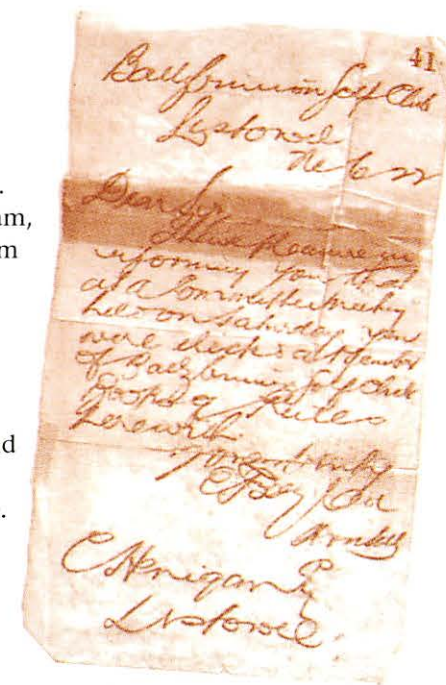 41
Ballybunion Golf Club
Listowel
Dear Sir
I have pleasure in
informing you that
at a Committee meeting
held on Saturday you
were elected a Member
of Ballybunion Golf Club
Book of Rules
herewith
Yours truly
C Henigan
Listowel.
.
am,
m
d
.